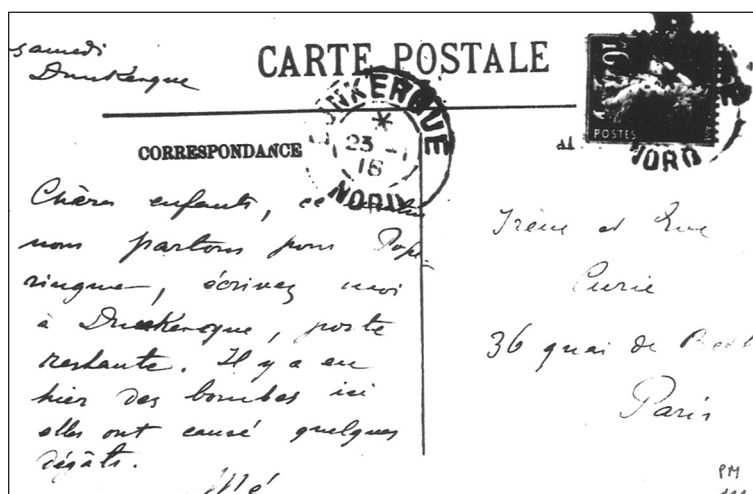 samedi
Dunkerque
CARTE POSTALE
DUNKERQUE
23 -
16
NORD
10
POSTES
NORD
CORRESPONDANCE
Chères enfants, ce matin
nous partons pour Pope-
ringue, écrivez moi
à Dunkerque, poste
restante. Il y a eu
hier des bombes ici
elles ont causé quelques
dégâts.
Mé
Irène et Eve
Curie
36 quai de
Paris
PM